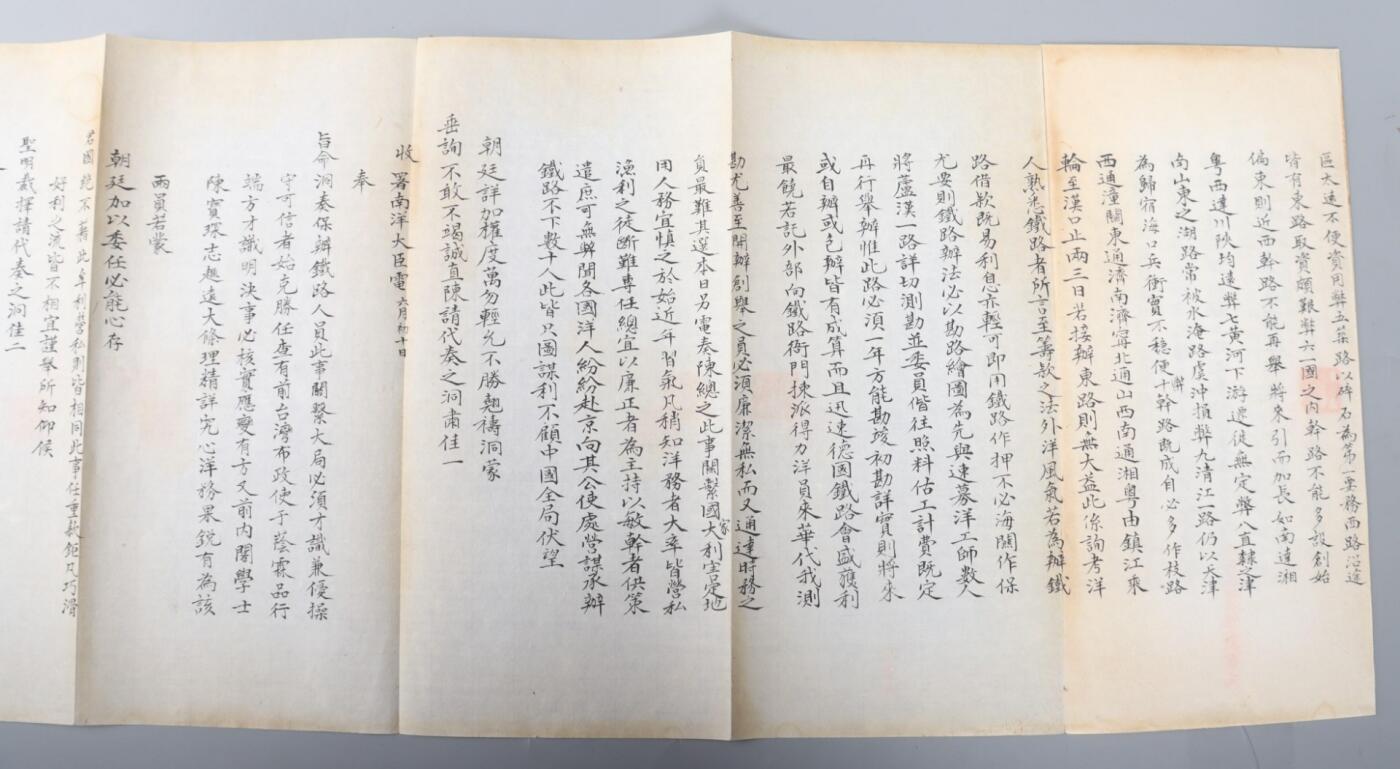 區太遠不便資用弊五築路以碎石為第一要務西路沿途
皆有東路取資頗艱弊六一國之內幹路不能多設創始
偏東則近西幹路不能再舉將來引而加長如南達湘
粵西達川陝均遠弊七黃河下游遷徙無定弊八直隸之津
南山東之湖路常被水淹路虞沖損弊九清江一路仍以天津
為歸宿海口兵衝實不穩便弊十幹路既成自必多作枝路
西通潼關東通濟南濟寧北通山西南通湘粵由鎮江來
輪至漢口止兩三日若接辦東路則無大益此係詢考洋
人熟悉鐵路者所言至籌款之法外洋風氣若為辦鐵
路借款既易利息亦輕可即用鐵路作押不必海關作保
尤要則鐵路辦法必以勘路繪圖為先與速募洋工師數人
將蘆漢一路詳切測勘並委員偕往照料估工計費既定
再行舉辦惟此路必須一年方能勘竣初勘詳實則將來
或自辦或包辦皆有成算而且迅速德國鐵路會盛獲利
最饒若託外部向鐵路衙門揀派得力洋員來華代我測
勘尤善至開辦創舉之員必須廉潔無私而又通達時務之
負最難其選本日另電奏陳總之此事關繫國家大利害是地
用人務宜慎之於始近年習氣凡稍知洋務者大率皆營私
漁利之徒斷難專任總宜以廉正者為主持以敏幹者供策
遣庶可無弊聞各國洋人紛紛赴京向其公使處營謀承辦
鐵路不下數十人此皆只圖謀利不顧中國全局伏望
朝廷詳加權度萬勿輕允不勝翹禱洞蒙
垂詢不敢不竭誠直陳請代奏之洞肅佳一
收署南洋大臣電 六月初十日
奉
旨命洞奏保辦鐵路人員此事關繫大局必須才識兼優操
守可信者始克勝任查有前台灣布政使于蔭霖品行
端方才識明決事必核實應變有方又前內閣學士
陳寶琛志趣遠大條理精詳究心洋務果銳有為該
兩員若蒙
朝廷加以委任必能心存
君國絕不藉此牟利營私則皆相同此事任重款鉅凡巧滑
好利之流皆不相宜謹舉所知仰候
聖明裁擇請代奏之洞佳二